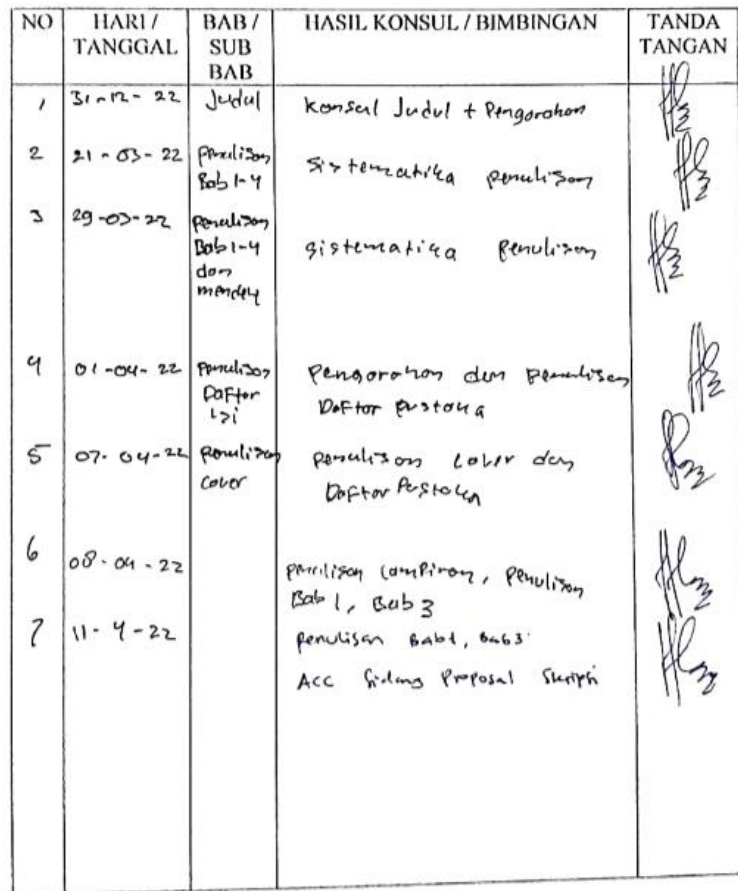 NO HARI / TANGGAL BAB / SUB BAB HASIL KONSUL / BIMBINGAN TANDA TANGAN
1 31-12-22 Judul Konsul Judul + Pengarahan
2 21-03-22 penulisan Bab 1-4 Sistematika penulisan
3 29-03-22 penulisan Bab 1-4 dan sistematika Penulisan
4 01-04-22 penulisan Daftar isi Pengarahan dan Penulisan Daftar pustaka
5 07-04-22 penulisan cover penulisan cover dan Daftar Pustaka
6 08-04-22 penulisan lampiran, penulisan Bab 1, Bab 3
7 11-4-22 penulisan Bab 1, Bab 3
ACC Sidang Proposal Skripsi